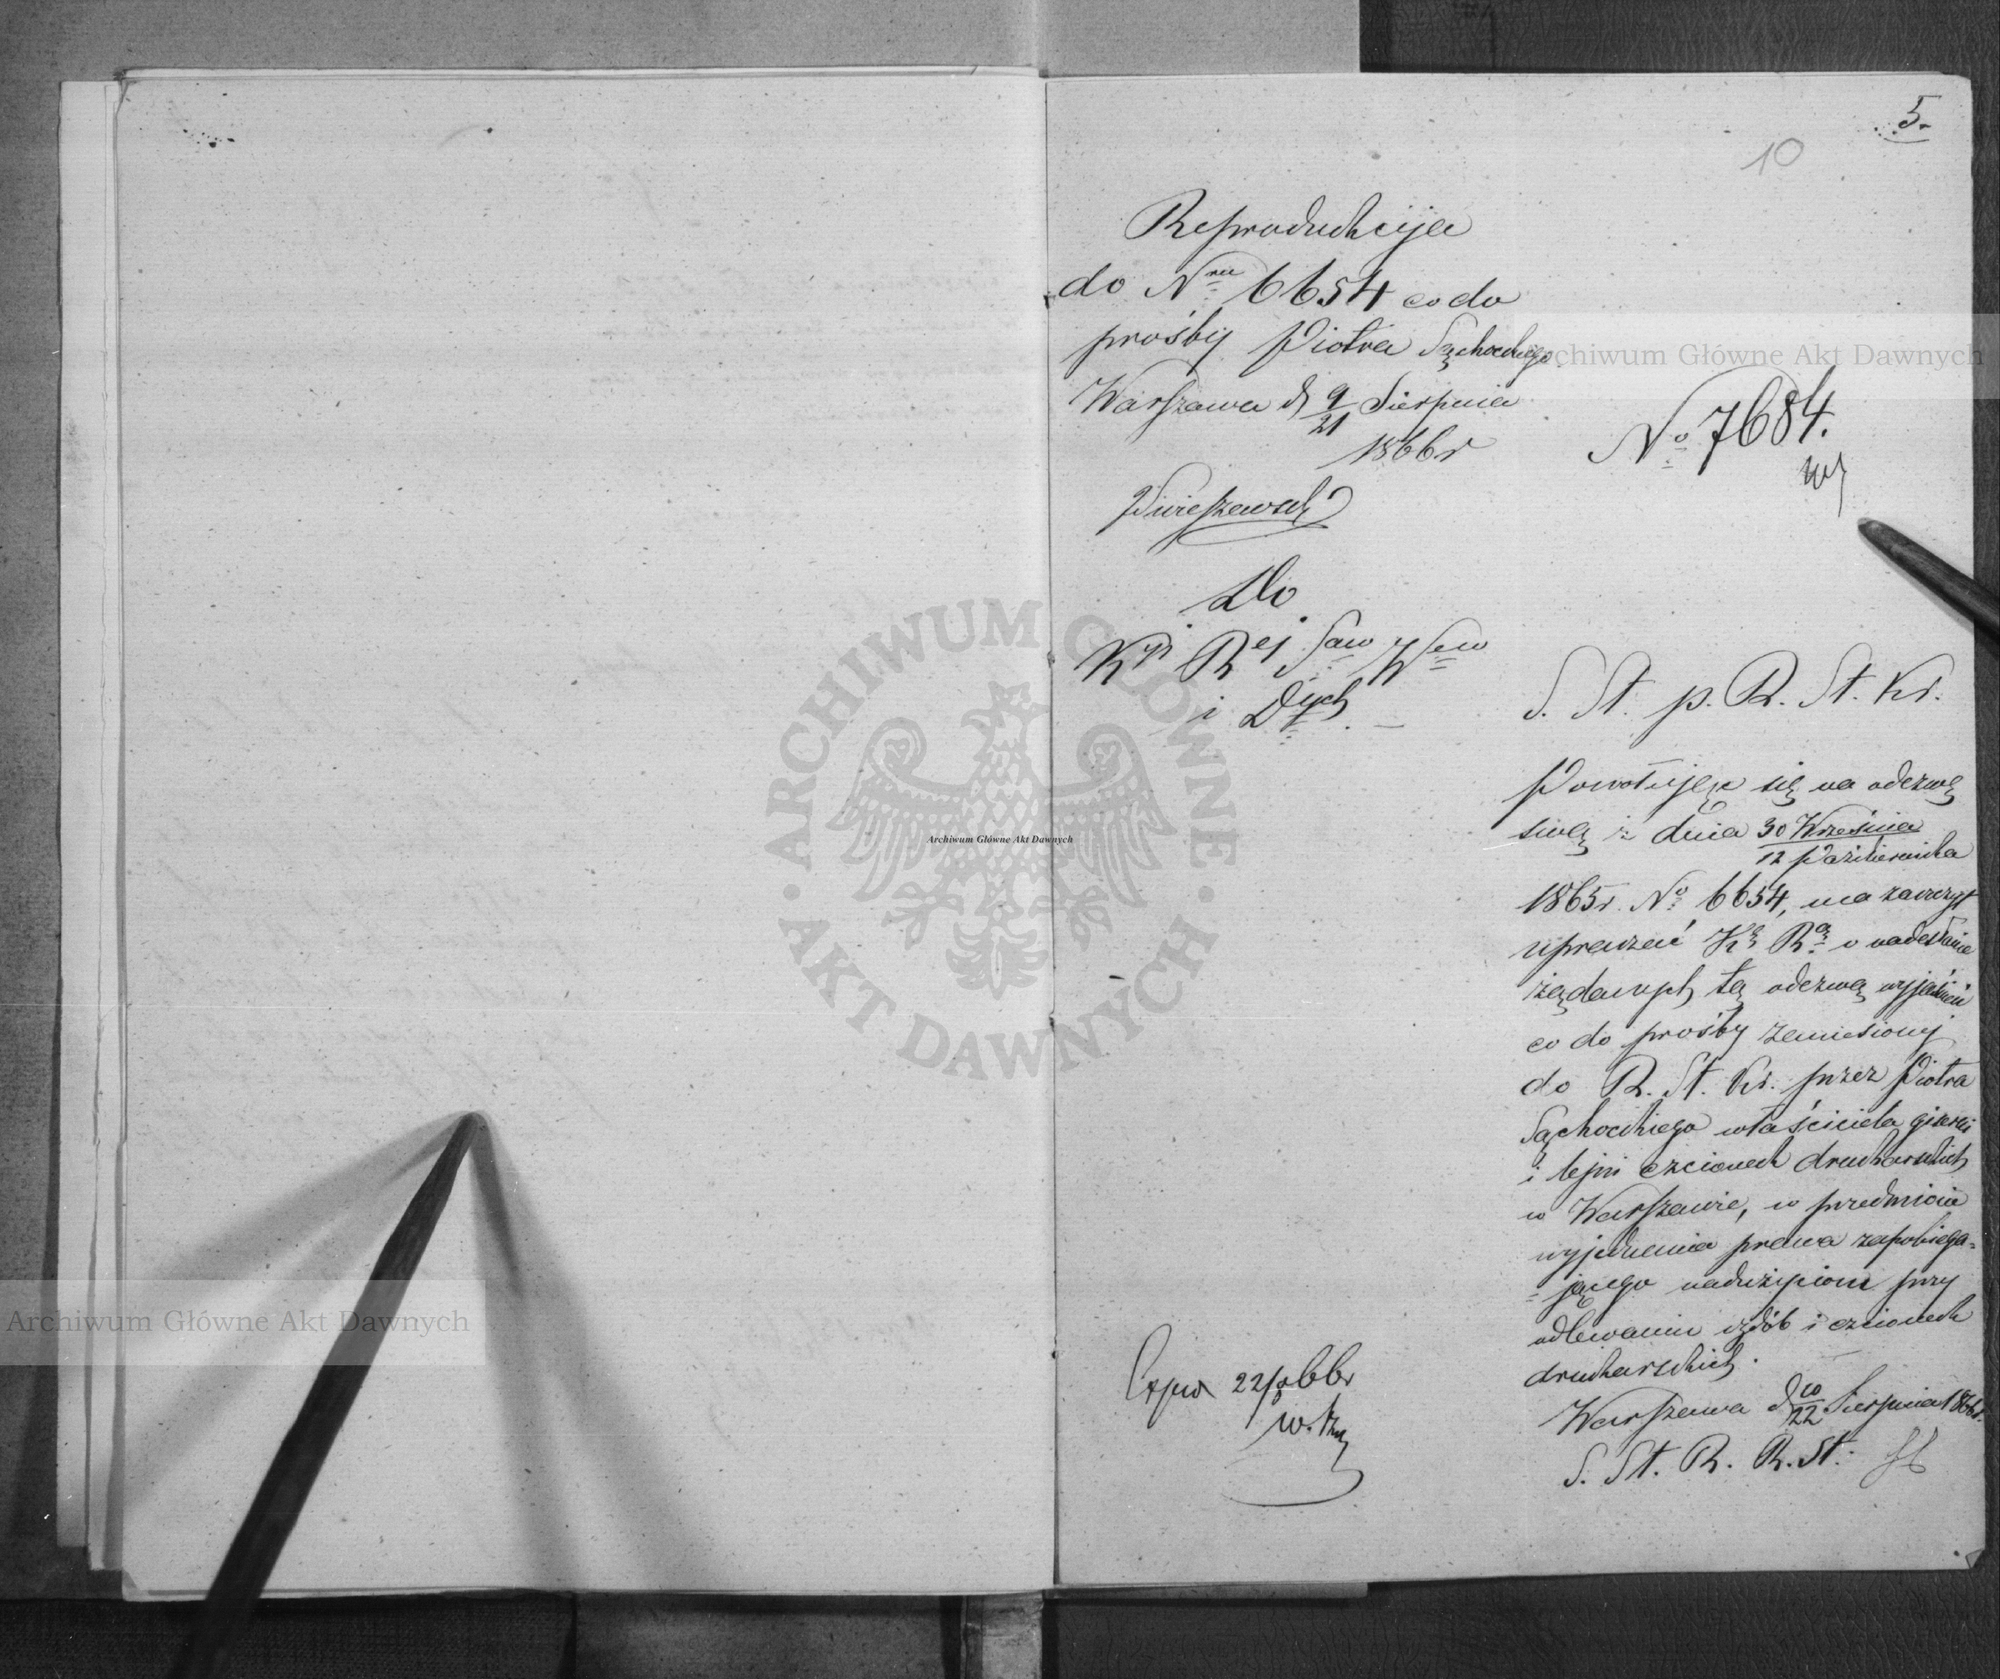 5.
10
Reprodukcija
do Nru 6654 co do
prośby Piotra Sąchockiego
Warszawa d 9/21 Sierpnia
1866 r
No 7684.
Do
Kyi Rej Spraw Wew
i Dych. –
S. St. p. R. St. Kr.
Powołując się na odezwę
swą z dnia 30 Września
12 Października
1865 r. No 6654, ma zaszczyt
upraszać Kę Rą o nadesłanie
żądanych tą odezwą wyjaśnień
co do prośby zaniesionej
do R. St. Kr. przez Piotra
Sąchockiego właściciela giserni
i lejni czcionek drukarskich
w Warszawie, w przedmiocie
wyjednania prawa zapobiega-
jącego nadużyciom przy
odlewaniu ozdób i czcionek
drukarskich.
Warszawa d 10/22 Sierpnia 1866 r.
S. St. R. R. St.
Exped 22/8 66 r
Archiwum Główne Akt Dawnych
Archiwum Główne Akt Dawnych
Archiwum Główne Akt Dawnych
ARCHIWUM GŁÓWNE · AKT DAWNYCH ·